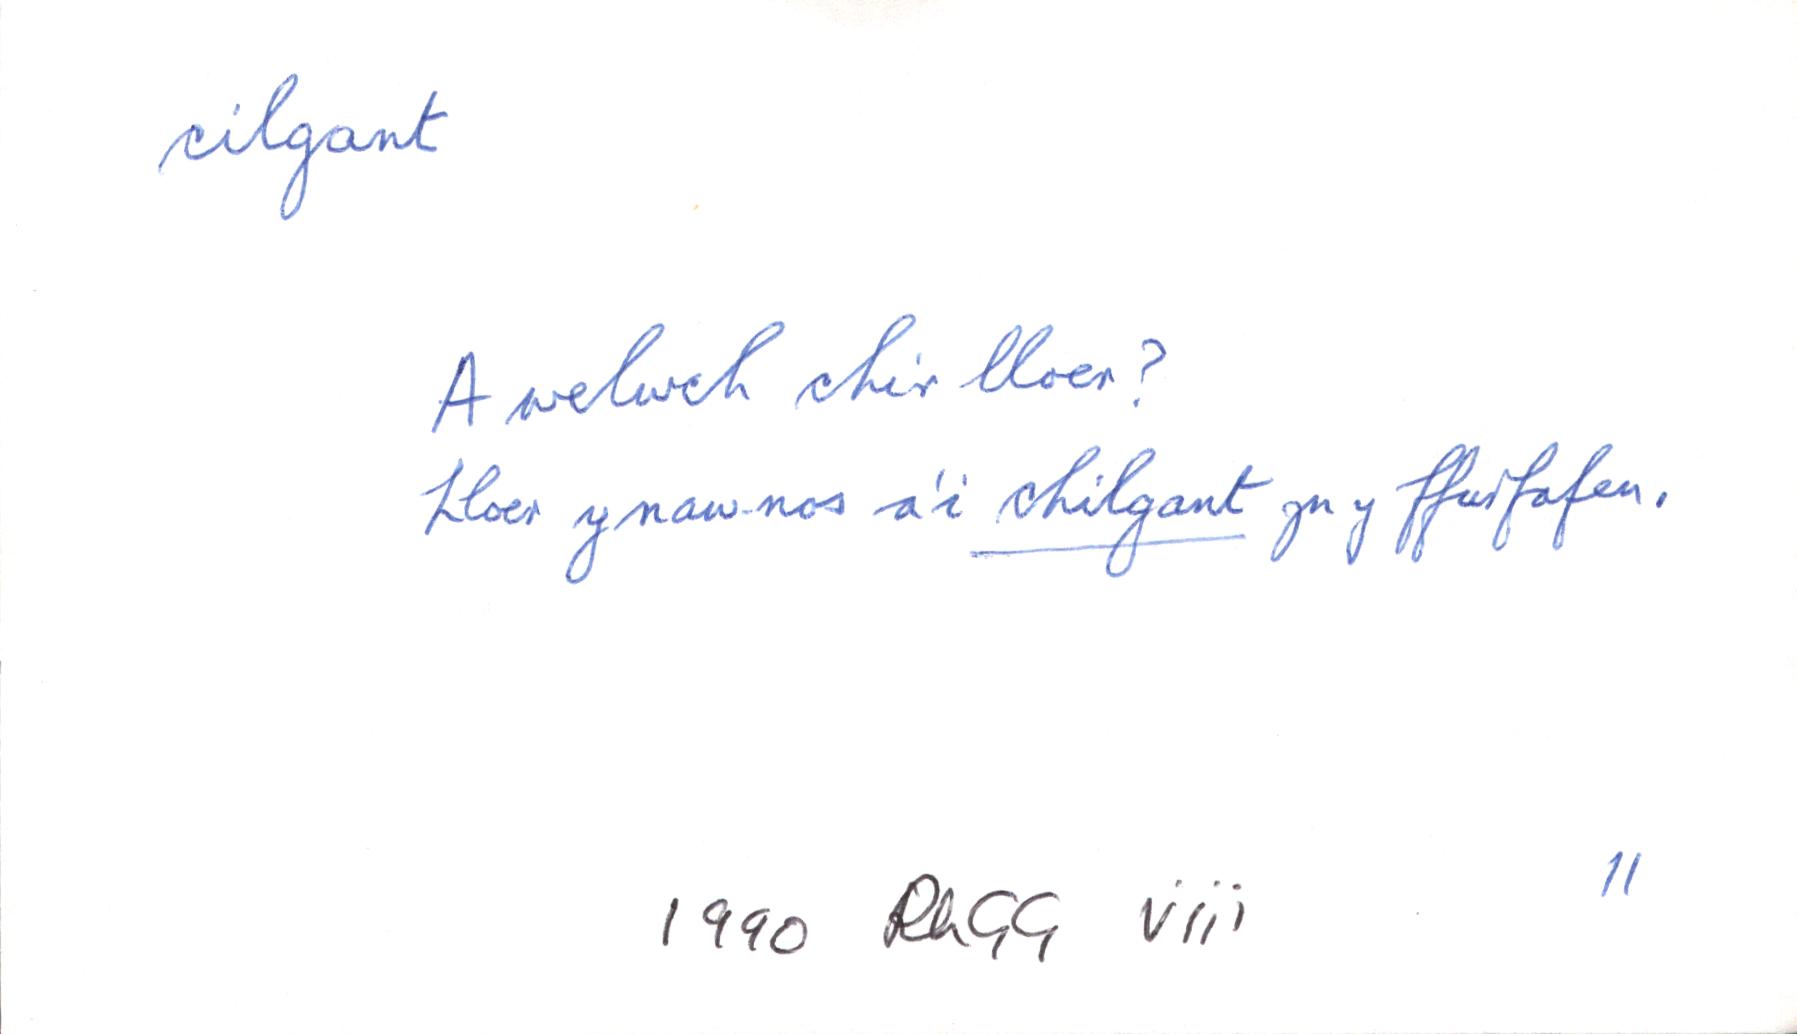 cilgant
A welwch chi'r lloer?
Lloer y naw-nos a'i chilgant yn y ffurfafen.
11
1990 RhGG viii